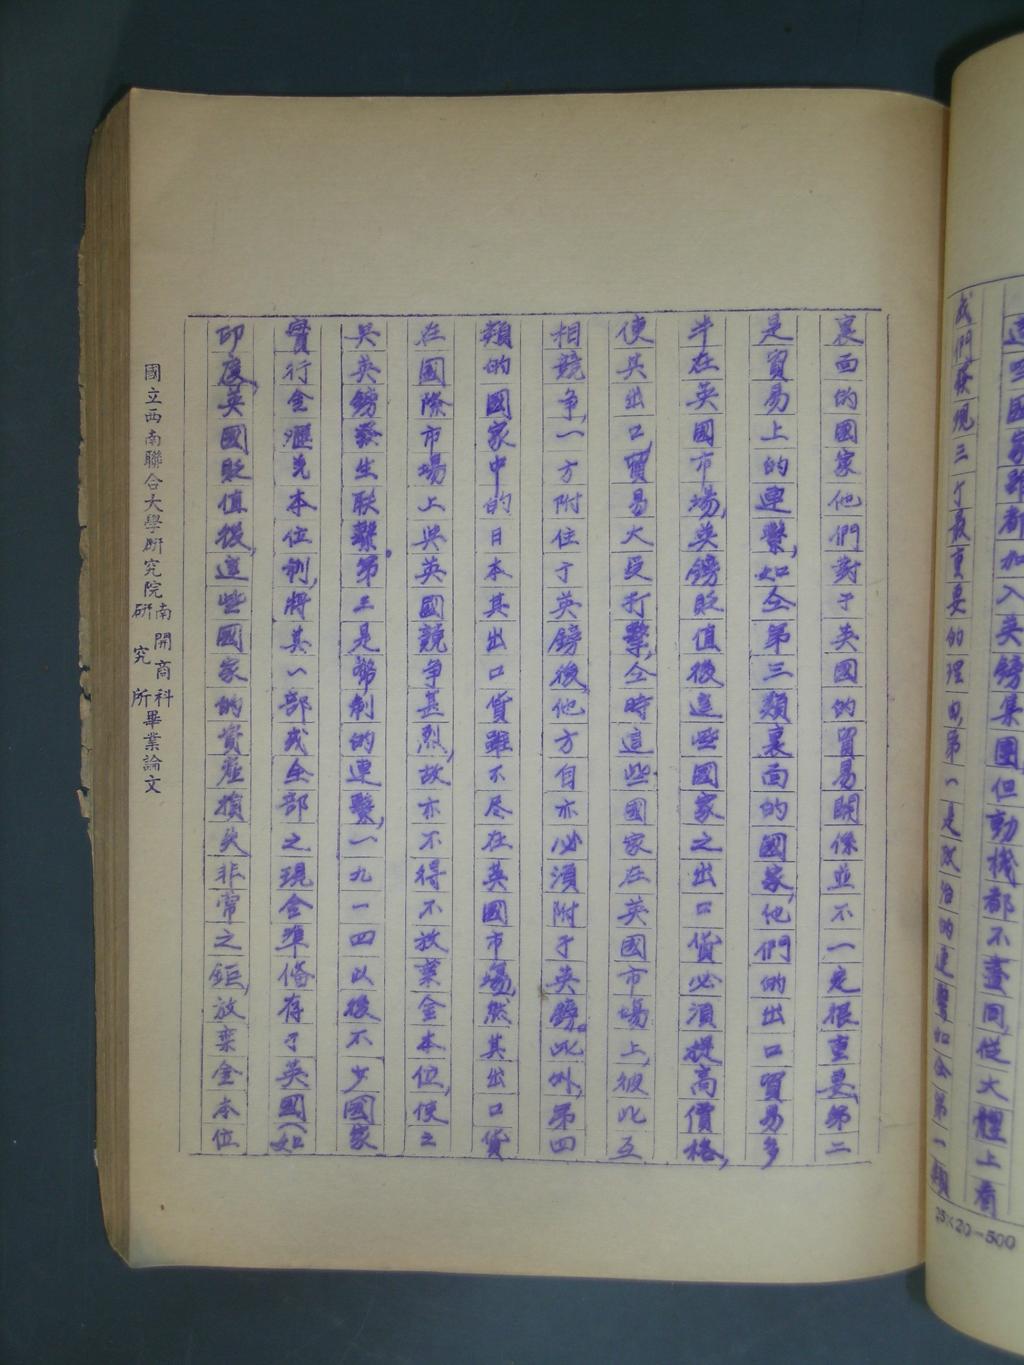 這些國家雖都加入英鎊集團,但動機都不盡同,從大體上看
我們發現三个最重要的理由,第一是政治的連繫如仝第一類
25×20=500
裏面的國家他們對于英國的貿易関係並不一定很重要,第二
是貿易上的連繫,如仝第三類裏面的國家,他們的出口貿易多
半在英國市場,英鎊貶值後這些國家之出口貨必須提高價格,
使其出口貿易大受打擊,仝時這些國家在英國市場上,彼此互
相競争,一方附住于英鎊後,他方自亦必須附于英鎊。此外,第四
類的國家中的日本其出口貨雖不尽在英國市場,然其出口貨
在國際市場上與英國競争甚烈,故亦不得不放棄金本位,使之
與英鎊發生联繫。第三是幣制的連繫,一九一四以後不少國家
實行金滙兌本位制,將其一部或全部之現金準备存于英國(如
印度,英國貶值後,這些國家的資產損失非常之鉅,放棄金本位
國立西南聯合大學研究院南開商科研究所畢業論文